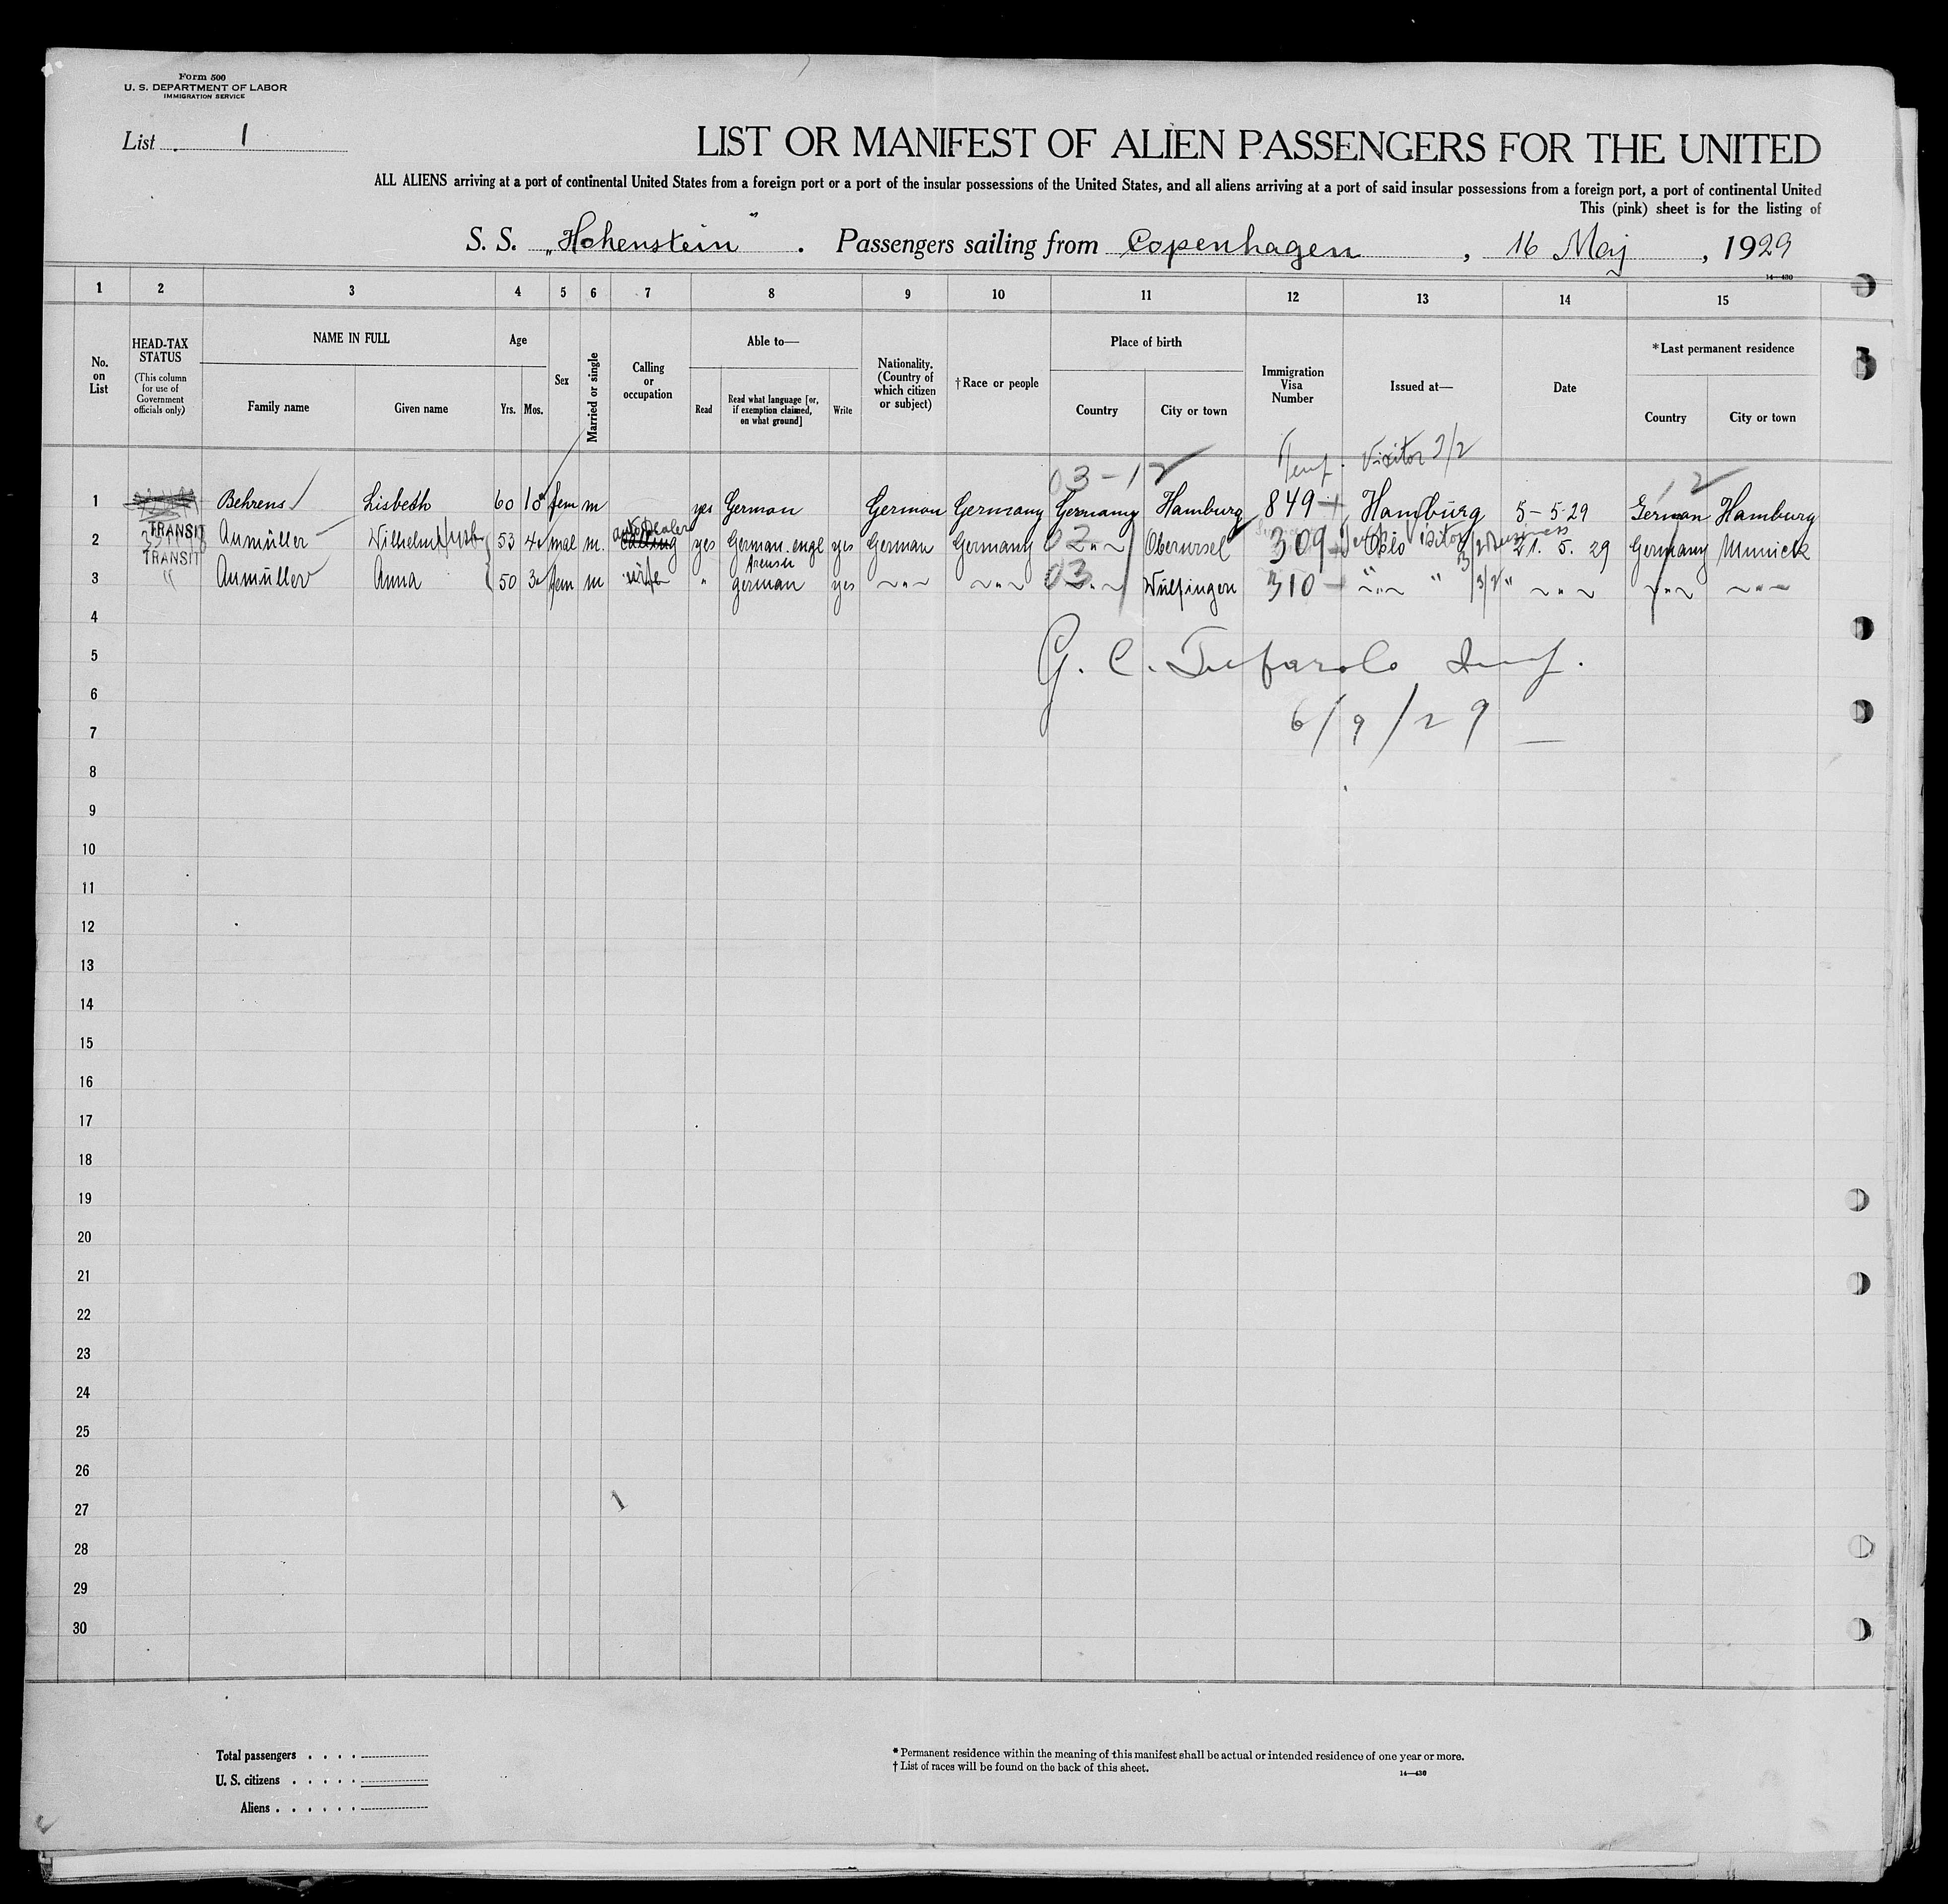 Form 500
U. S. DEPARTMENT OF LABOR
IMMIGRATION SERVICE
List 1
LIST OR MANIFEST OF ALIEN PASSENGERS FOR THE UNITED
ALL ALIENS arriving at a port of continental United States from a foreign port or a port of the insular possessions of the United States, and all aliens arriving at a port of said insular possessions from a foreign port, a port of continental United
This (pink) sheet is for the listing of
S. S. „Hohenstein" . Passengers sailing from Copenhagen , 16 May , 1929
14—430
1 2 3 4 5 6 7 8 9 10 11 12 13 14 15
No. on List
HEAD-TAX STATUS
(This column for use of Government officials only)
NAME IN FULL
Family name Given name
Age
Yrs. Mos.
Sex
Married or single
Calling or occupation
Able to—
Read
Read what language [or, if exemption claimed, on what ground]
Write
Nationality. (Country of which citizen or subject)
†Race or people
Place of birth
Country City or town
Immigration Visa Number
Issued at—
Date
*Last permanent residence
Country City or town
03-12 Visitor 3/2
1 Behrens Lisbeth 60 10 fem m yes German German Germany Germany Hamburg 849 Hamburg 5-5-29 German Hamburg
12
TRANSIT
2 Aumüller Wilhelm 53 4 mal m. yes German. engl yes German Germany 02 " Oberursel 309 Oslo Visitor 21. 5. 29 Germany Munick
TRANSIT
3 " Aumüller Anna 50 3 fem m wife " german yes ~"~ ~"~ 03 " Wülfingen 310 ~"~ " 3/2 " ~"~ ~"~ ~"~
4
5
6
6/9/29
7
8
9
10
11
12
13
14
15
16
17
18
19
20
21
22
23
24
25
26
27
28
29
30
Total passengers . . . .
U. S. citizens . . . . .
Aliens . . . . . .
* Permanent residence within the meaning of this manifest shall be actual or intended residence of one year or more.
† List of races will be found on the back of this sheet.
14—430